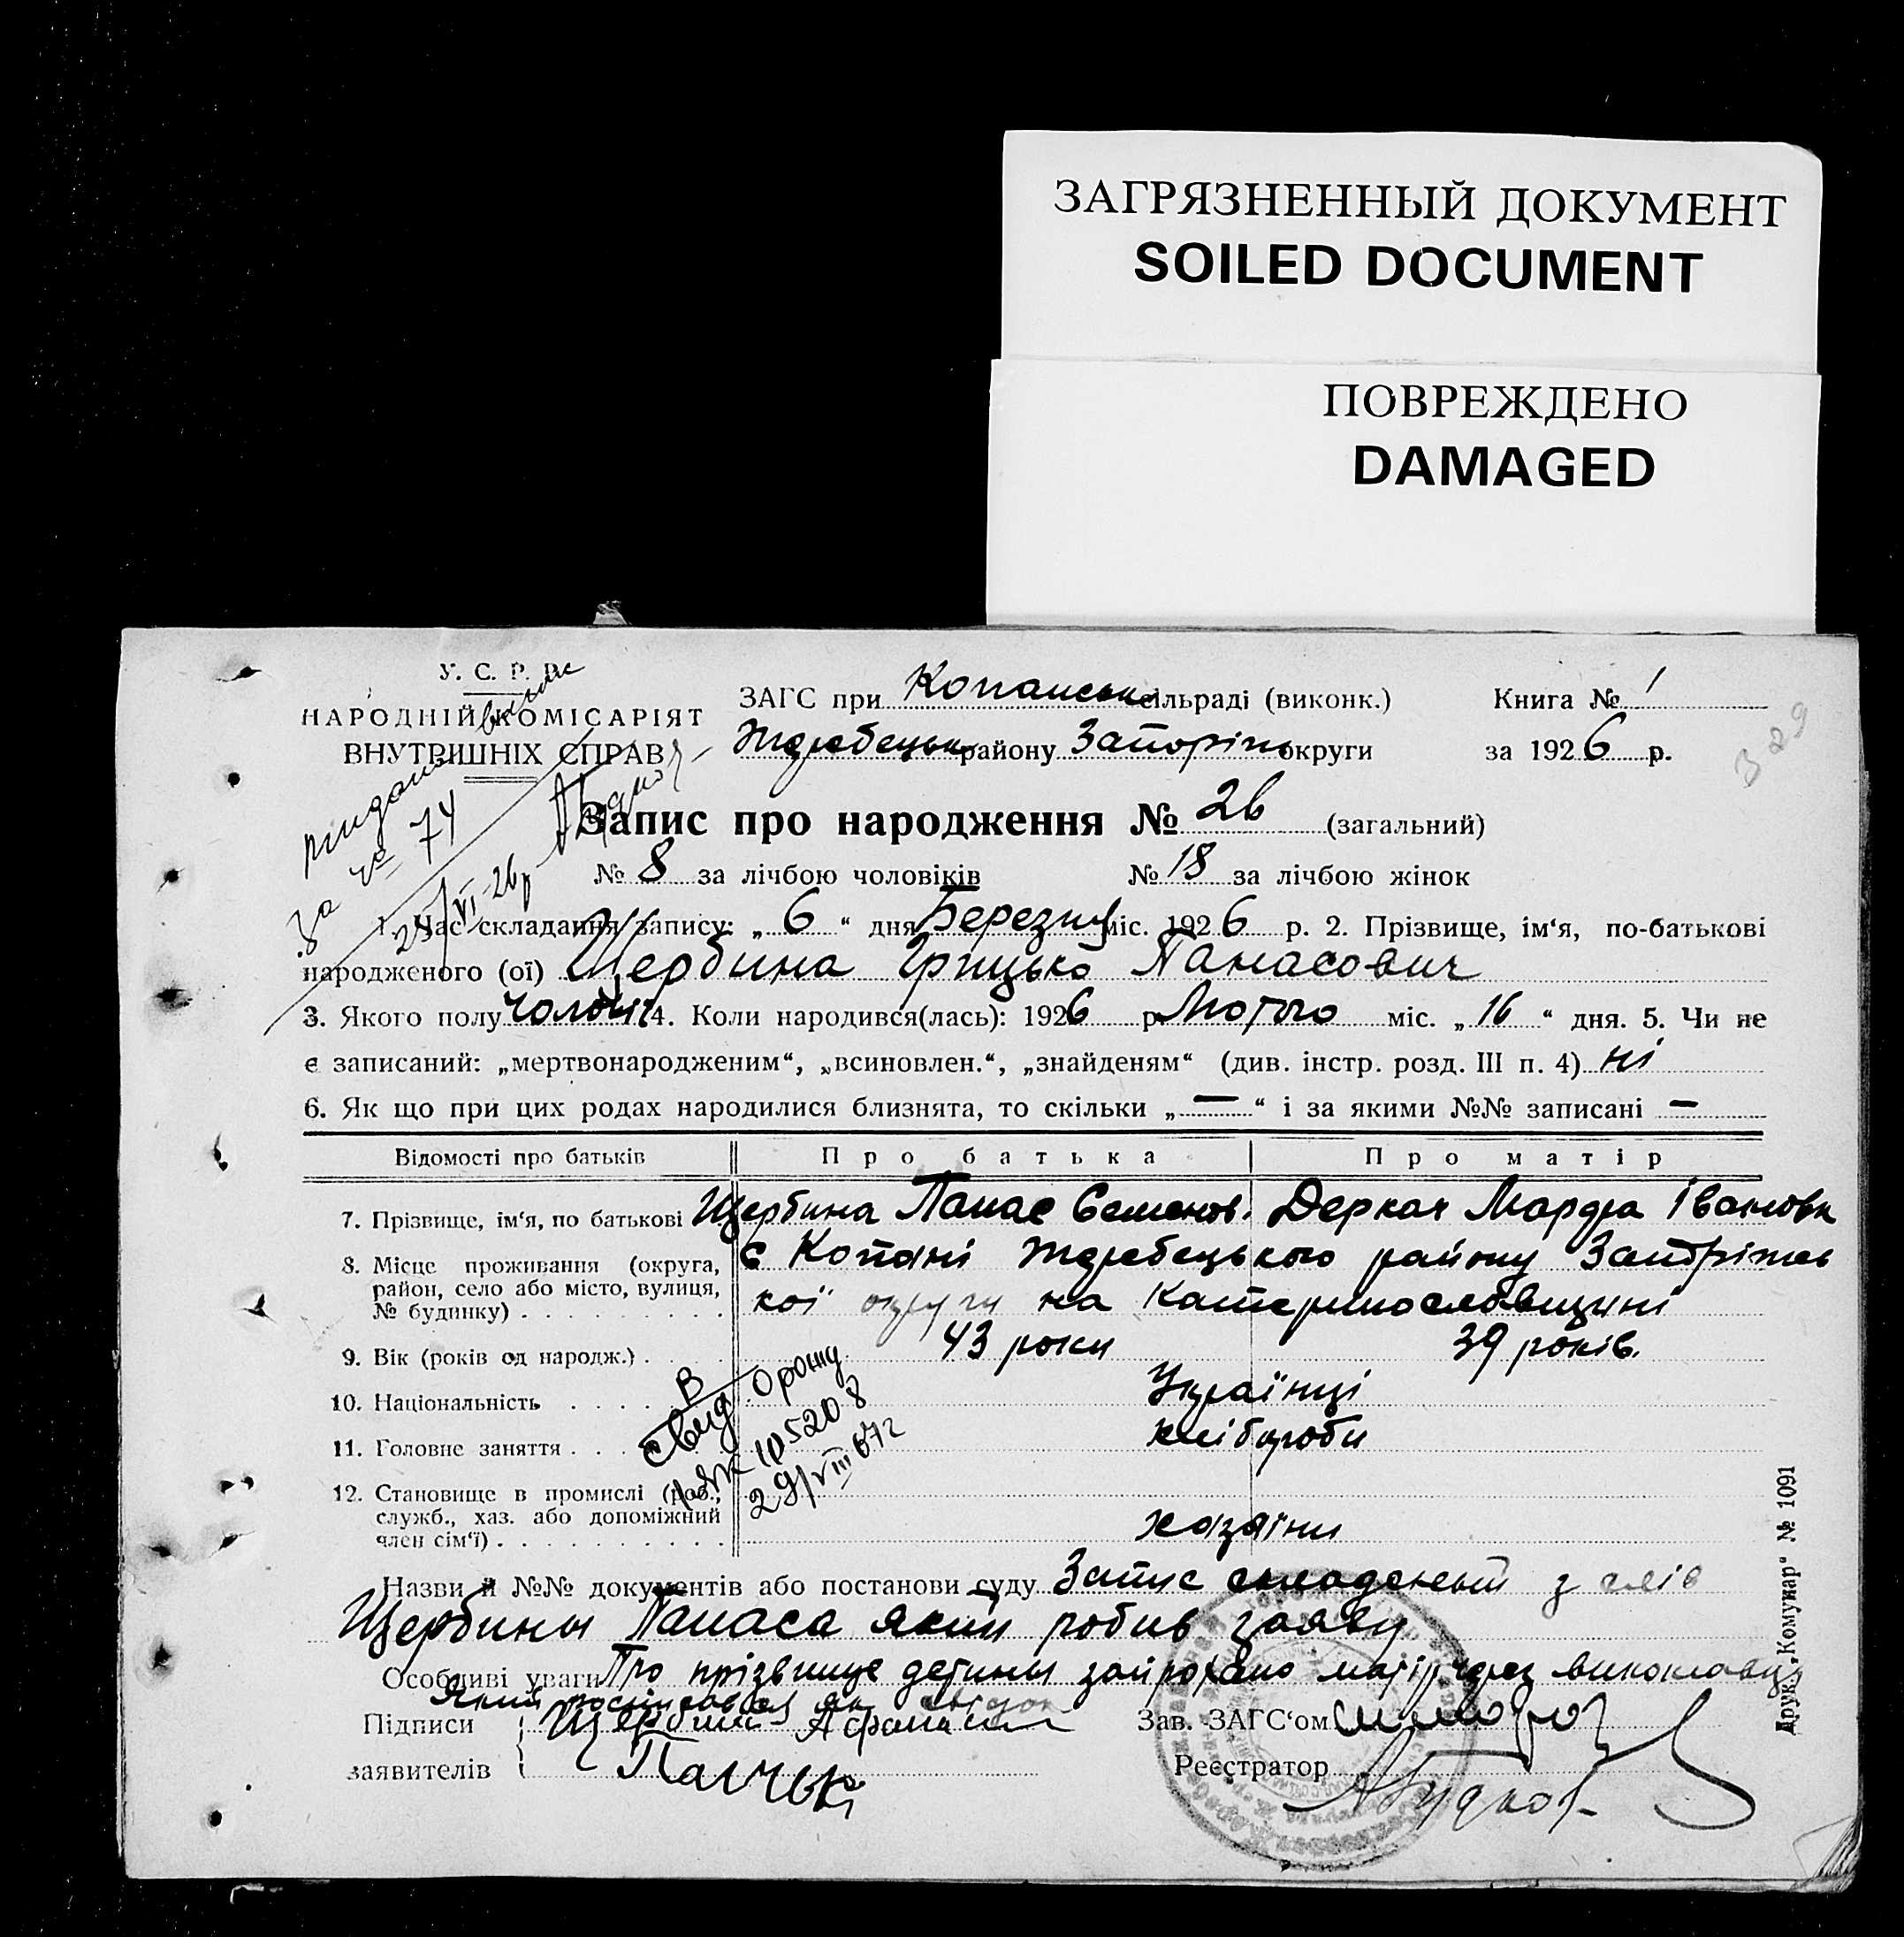 ЗАГРЯЗНЕННЫЙ ДОКУМЕНТ
SOILED DOCUMENT
ПОВРЕЖДЕНО
DAMAGED
У. С. Р. Р.
НАРОДНІЙ КОМІСАРІЯТ
ВНУТРИШНІХ СПРАВ
ЗАГС при Копанськ сільраді (виконк.) Книга № 1
Жеребецьк району Запоріж округи за 1926 р.
329
За № 74
25/VI-26р
Запис про народження № 26 (загальний)
№ 8 за лічбою чоловіків № 18 за лічбою жінок
1. Час складання запису: „ 6 “ дня Березня міс. 1926 р. 2. Прізвище, ім‘я, по-батькові
народженого (ої) Щербина Грицько Панасович
3. Якого полу чолові 4. Коли народився(лась): 1926 р Лютого міс. „ 16 “ дня. 5. Чи не
є записаний: „мертвонародженим“, „всиновлен.“, „знайденям“ (див. інстр. розд. III п. 4) ні
6. Як що при цих родах народилися близнята, то скільки „ — “ і за якими №№ записані —
Відомості про батьків Про батька Про матір
7. Прізвище, ім‘я, по батькові Щербина Панас Семенов. Деркач Марфа Івановн
8. Місце проживання (округа, район, село або місто, вулиця, № будинку) с Копані Жеребецького району Запоріжсь
кої округи на Катеринославщині
9. Вік (років од народж.) 43 роки 39 років.
10. Національність Українці
11. Головне заняття хлібороби
12. Становище в промислі (роб., служб., хаз. або допоміжний член сім‘ї) хазяїни
В
105208
29/VIII
Назви й №№ документів або постанови суду Запис складений з слів
Щербины Панаса який робив заяву
Особливі уваги Про прізвище детины
Підписи Щербина
заявителів
Зав. ЗАГС‘ом
Реєстратор
Друк. „Комунар“ № 1091